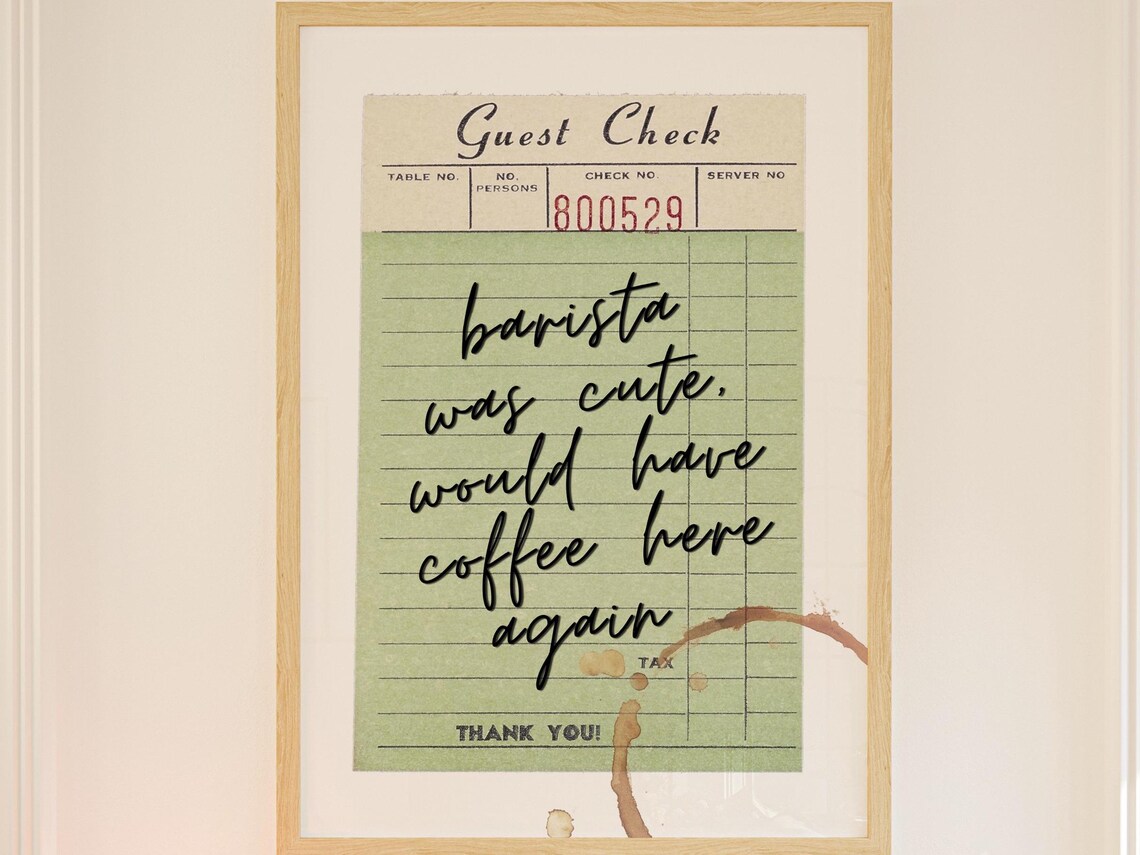 Guest Check
TABLE NO. NO. PERSONS CHECK NO. SERVER NO
800529
barista
was cute,
would have
coffee here
again
TAX
THANK YOU!